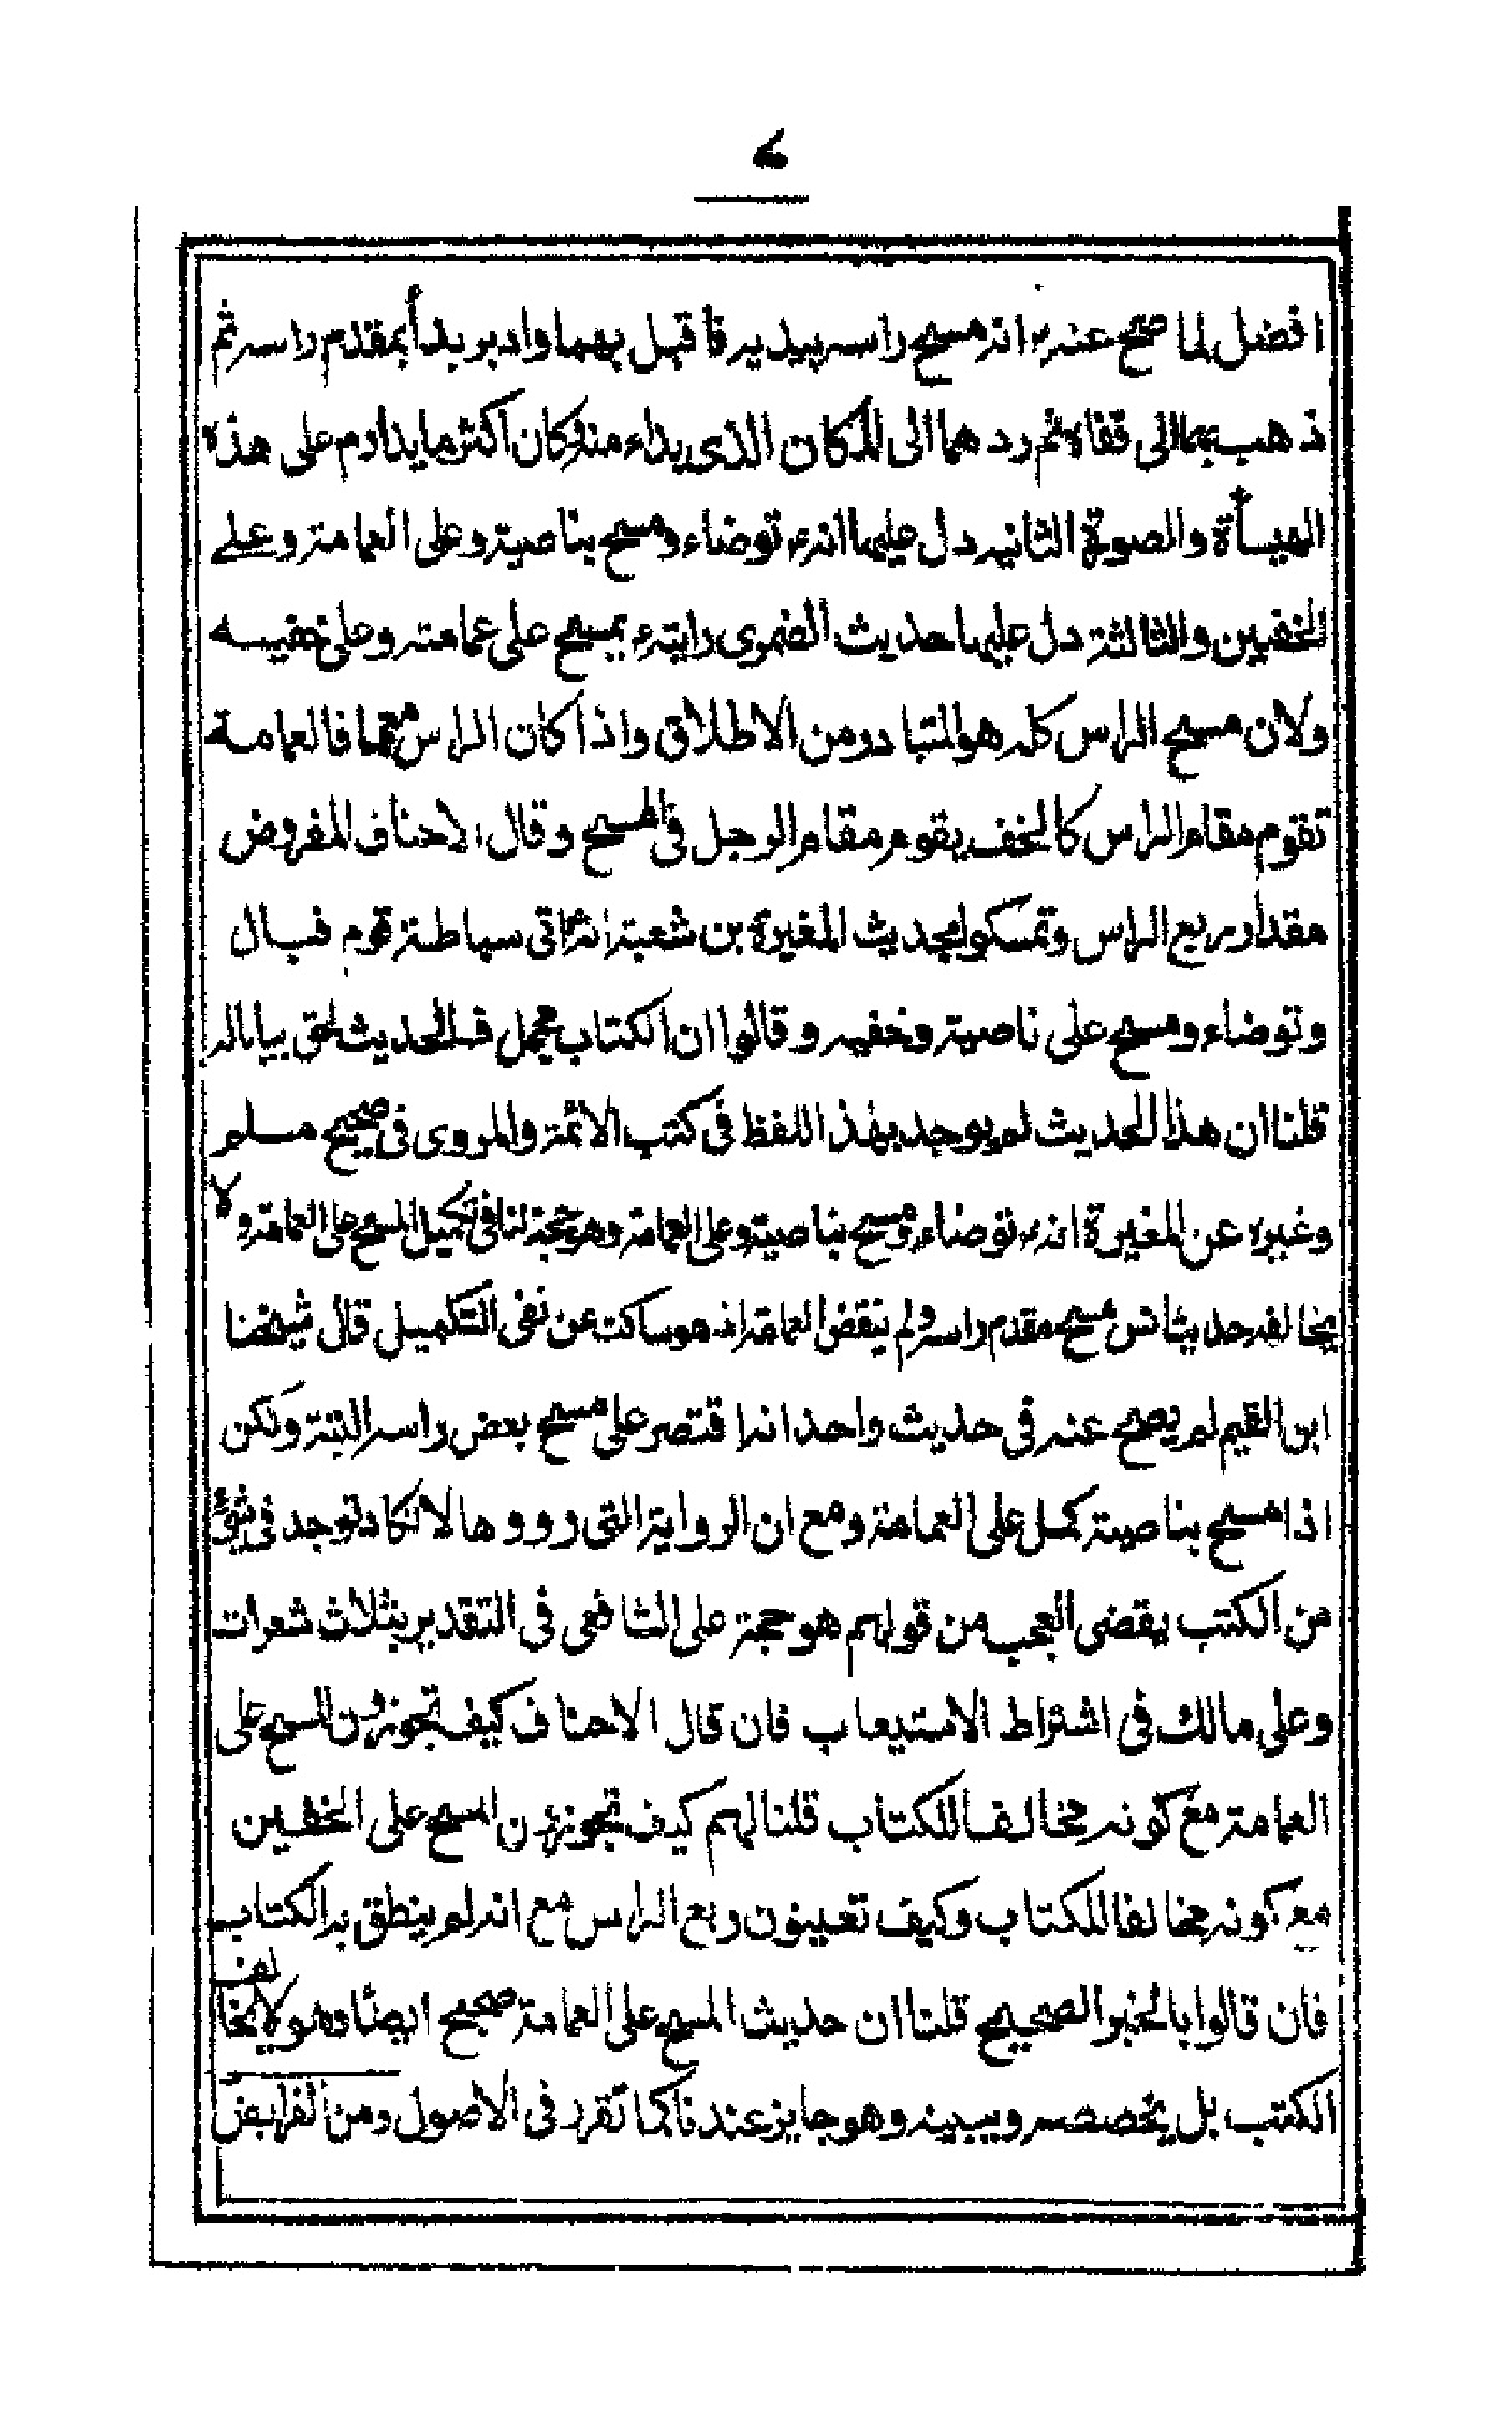 ٧
افضل لما صح عنه ء انه مسح راسه بيديه فاقبل بهما وادبر بدأ بمقدم راسه ثم
ذهب بهما الى قفاه ثم ردهما الى المكان الذى بداء منه وكان اكثر ما يداوم على هذه
الهيأة والصورة الثانيه دل عليها انه ء توضاء ومسح بناصيته وعلى العمامته وعلے
الخفين والثالثة دل عليها حديث الضمرى رايته ء يمسح على عمامته وعلى خفيه
ولان مسح الراس كله هو المتبادر من الاطلاق واذا كان الراس معمما فالعمامة
تقوم مقام الراس كالخف يقوم مقام الرجل فى المسح وقال الاحناف المفروض
مقدار ربع الراس وتمسكوا بحديث المغيرة بن شعبة انه ء اتى سباطة قوم فبال
وتوضاء ومسح على ناصيته وخفيه وقالوا ان الكتاب مجمل فالحديث لحق بيانا له
قلنا ان هذا الحديث لم يوجد بهذا اللفظ فى كتب الائمة والمروى فى صحيح مسلم
وغيره عن المغيرة انه ء توضاء ومسح بناصيته وعلى العمامة وهو حجة لنا فى تكميل المسح على العمامة ولا
يخالفه حديث انس مسح مقدم راسه ولم ينقض العمامة اذ هو ساكت عن نفى التكميل قال شيخنا
ابن القيم لم يصح عنه فى حديث واحد انه اقتصر على مسح بعض راسه البتة ولكن
اذا مسح بناصيته كمل على العمامة ومع ان الرواية التى رووها لا تكاد توجد فى شئ
من الكتب يقضى العجب من قولهم هو حجة على الشافعى فى التقدير بثلاث شعرات
وعلى مالك فى اشتراط الاستيعاب فان قال الاحناف كيف تجوزون المسح على
العمامة مع كونه مخالفا للكتاب قلنا لهم كيف تجوزون المسح على الخفين
مع كونه مخالفا للكتاب وكيف تعينون ربع الراس مع انه لم ينطق به الكتاب
فان قالوا بالخبر الصحيح قلنا ان حديث المسح على العمامة صحيح ايضا وهو لا يخالف
الكتب بل يخصصه ويبينه وهو جايز عندنا كما تقرر فى الاصول ومن الفرايض